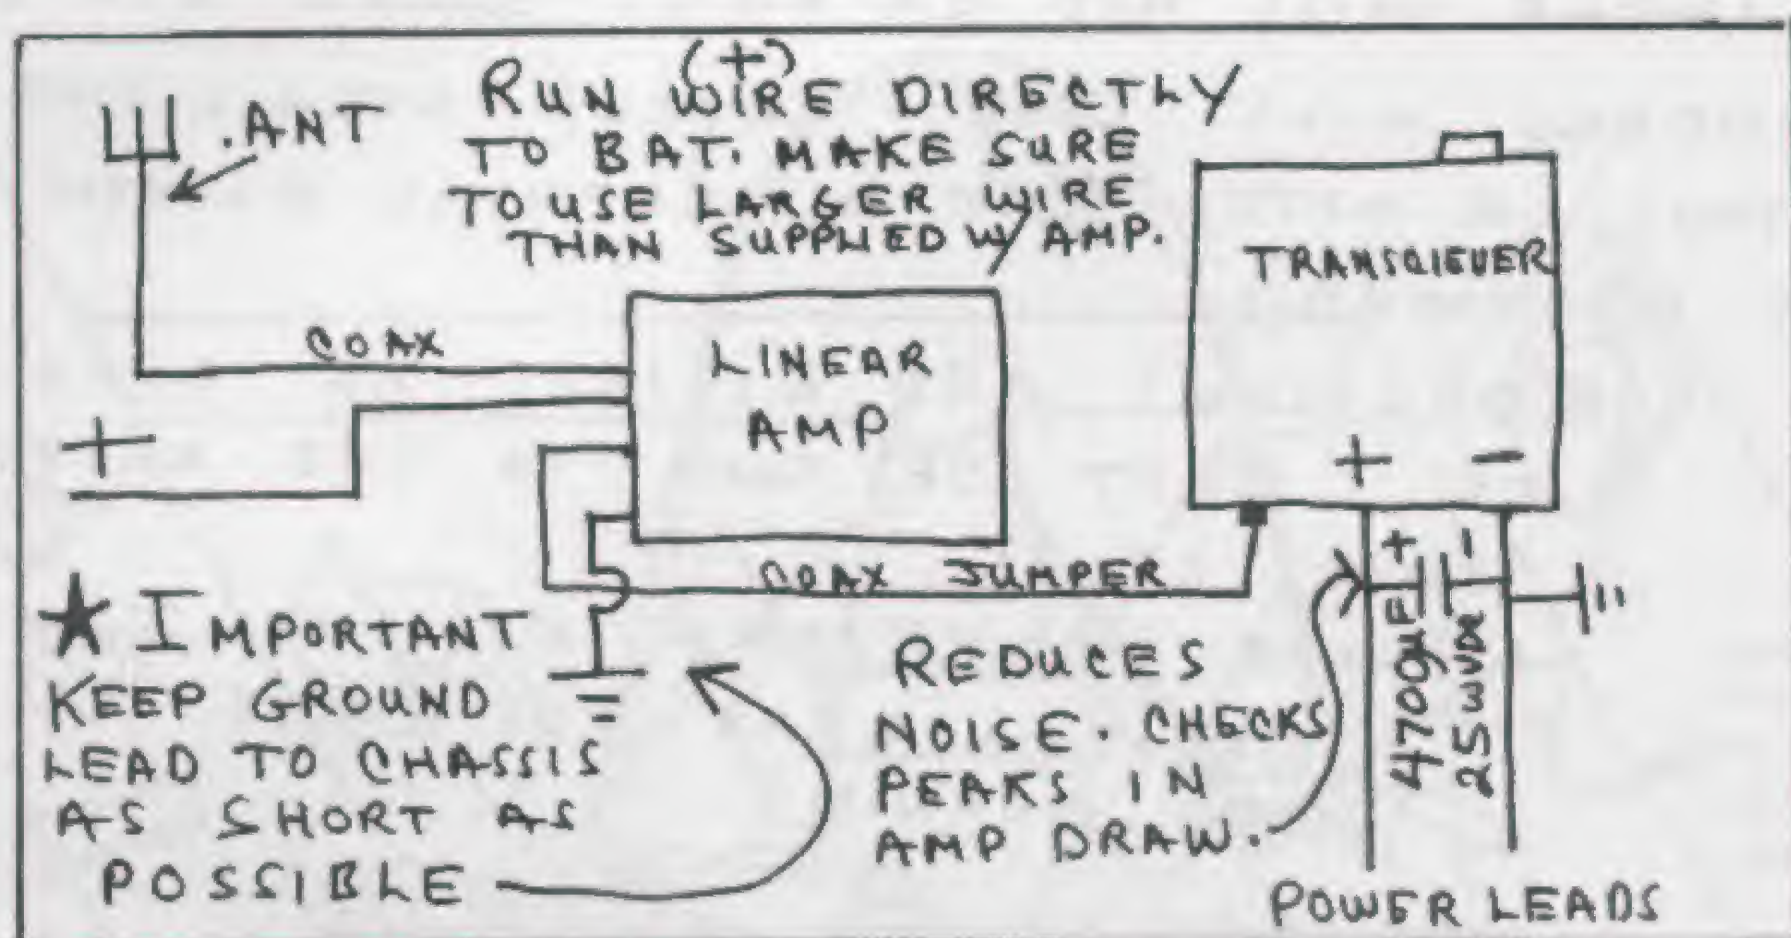 .ANT
RUN (+) WIRE DIRECTLY
TO BAT. MAKE SURE
TO USE LARGER WIRE
THAN SUPPLIED W/ AMP.
TRANSCIEVER
COAX
LINEAR
AMP
+
+ -
+ -
COAX JUMPER
4700µF
25WVDC
★ IMPORTANT
KEEP GROUND
LEAD TO CHASSIS
AS SHORT AS
POSSIBLE
REDUCES
NOISE. CHECKS
PEAKS IN
AMP DRAW.
POWER LEADS